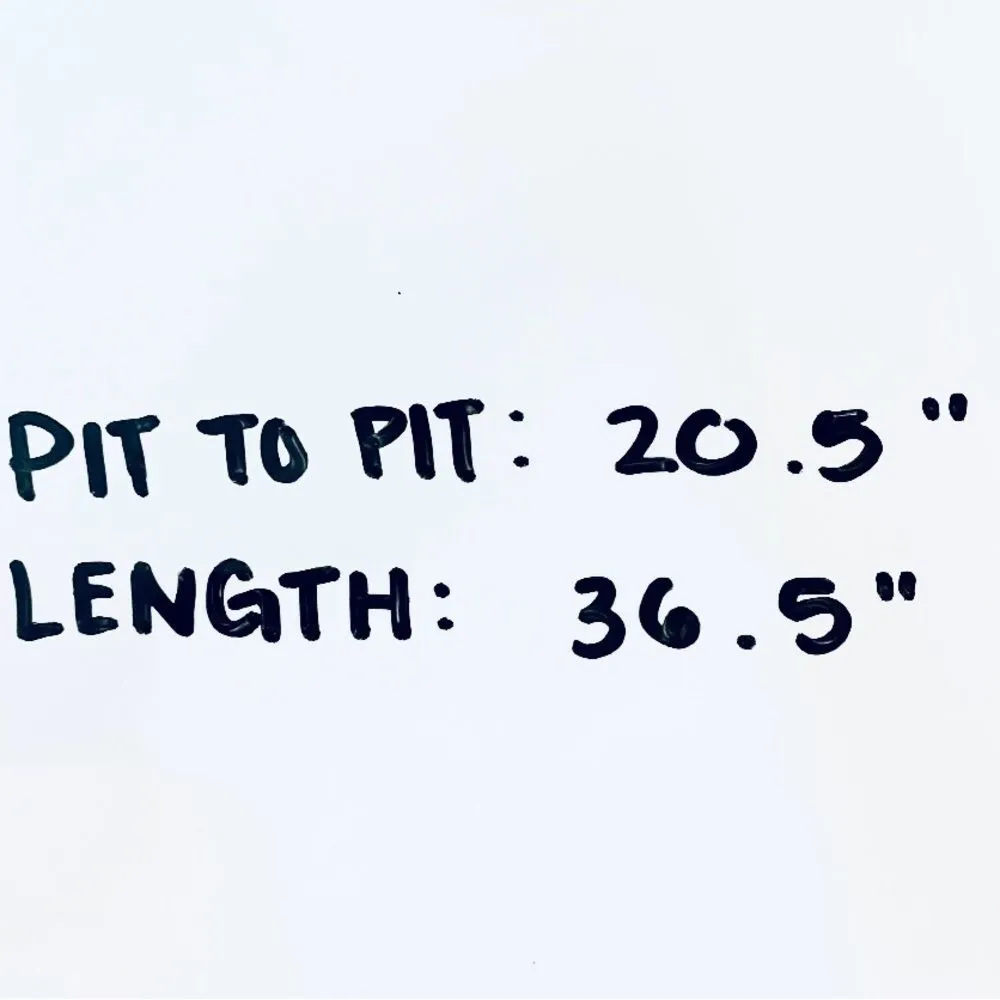 PIT TO PIT: 20.5"
LENGTH: 36.5"